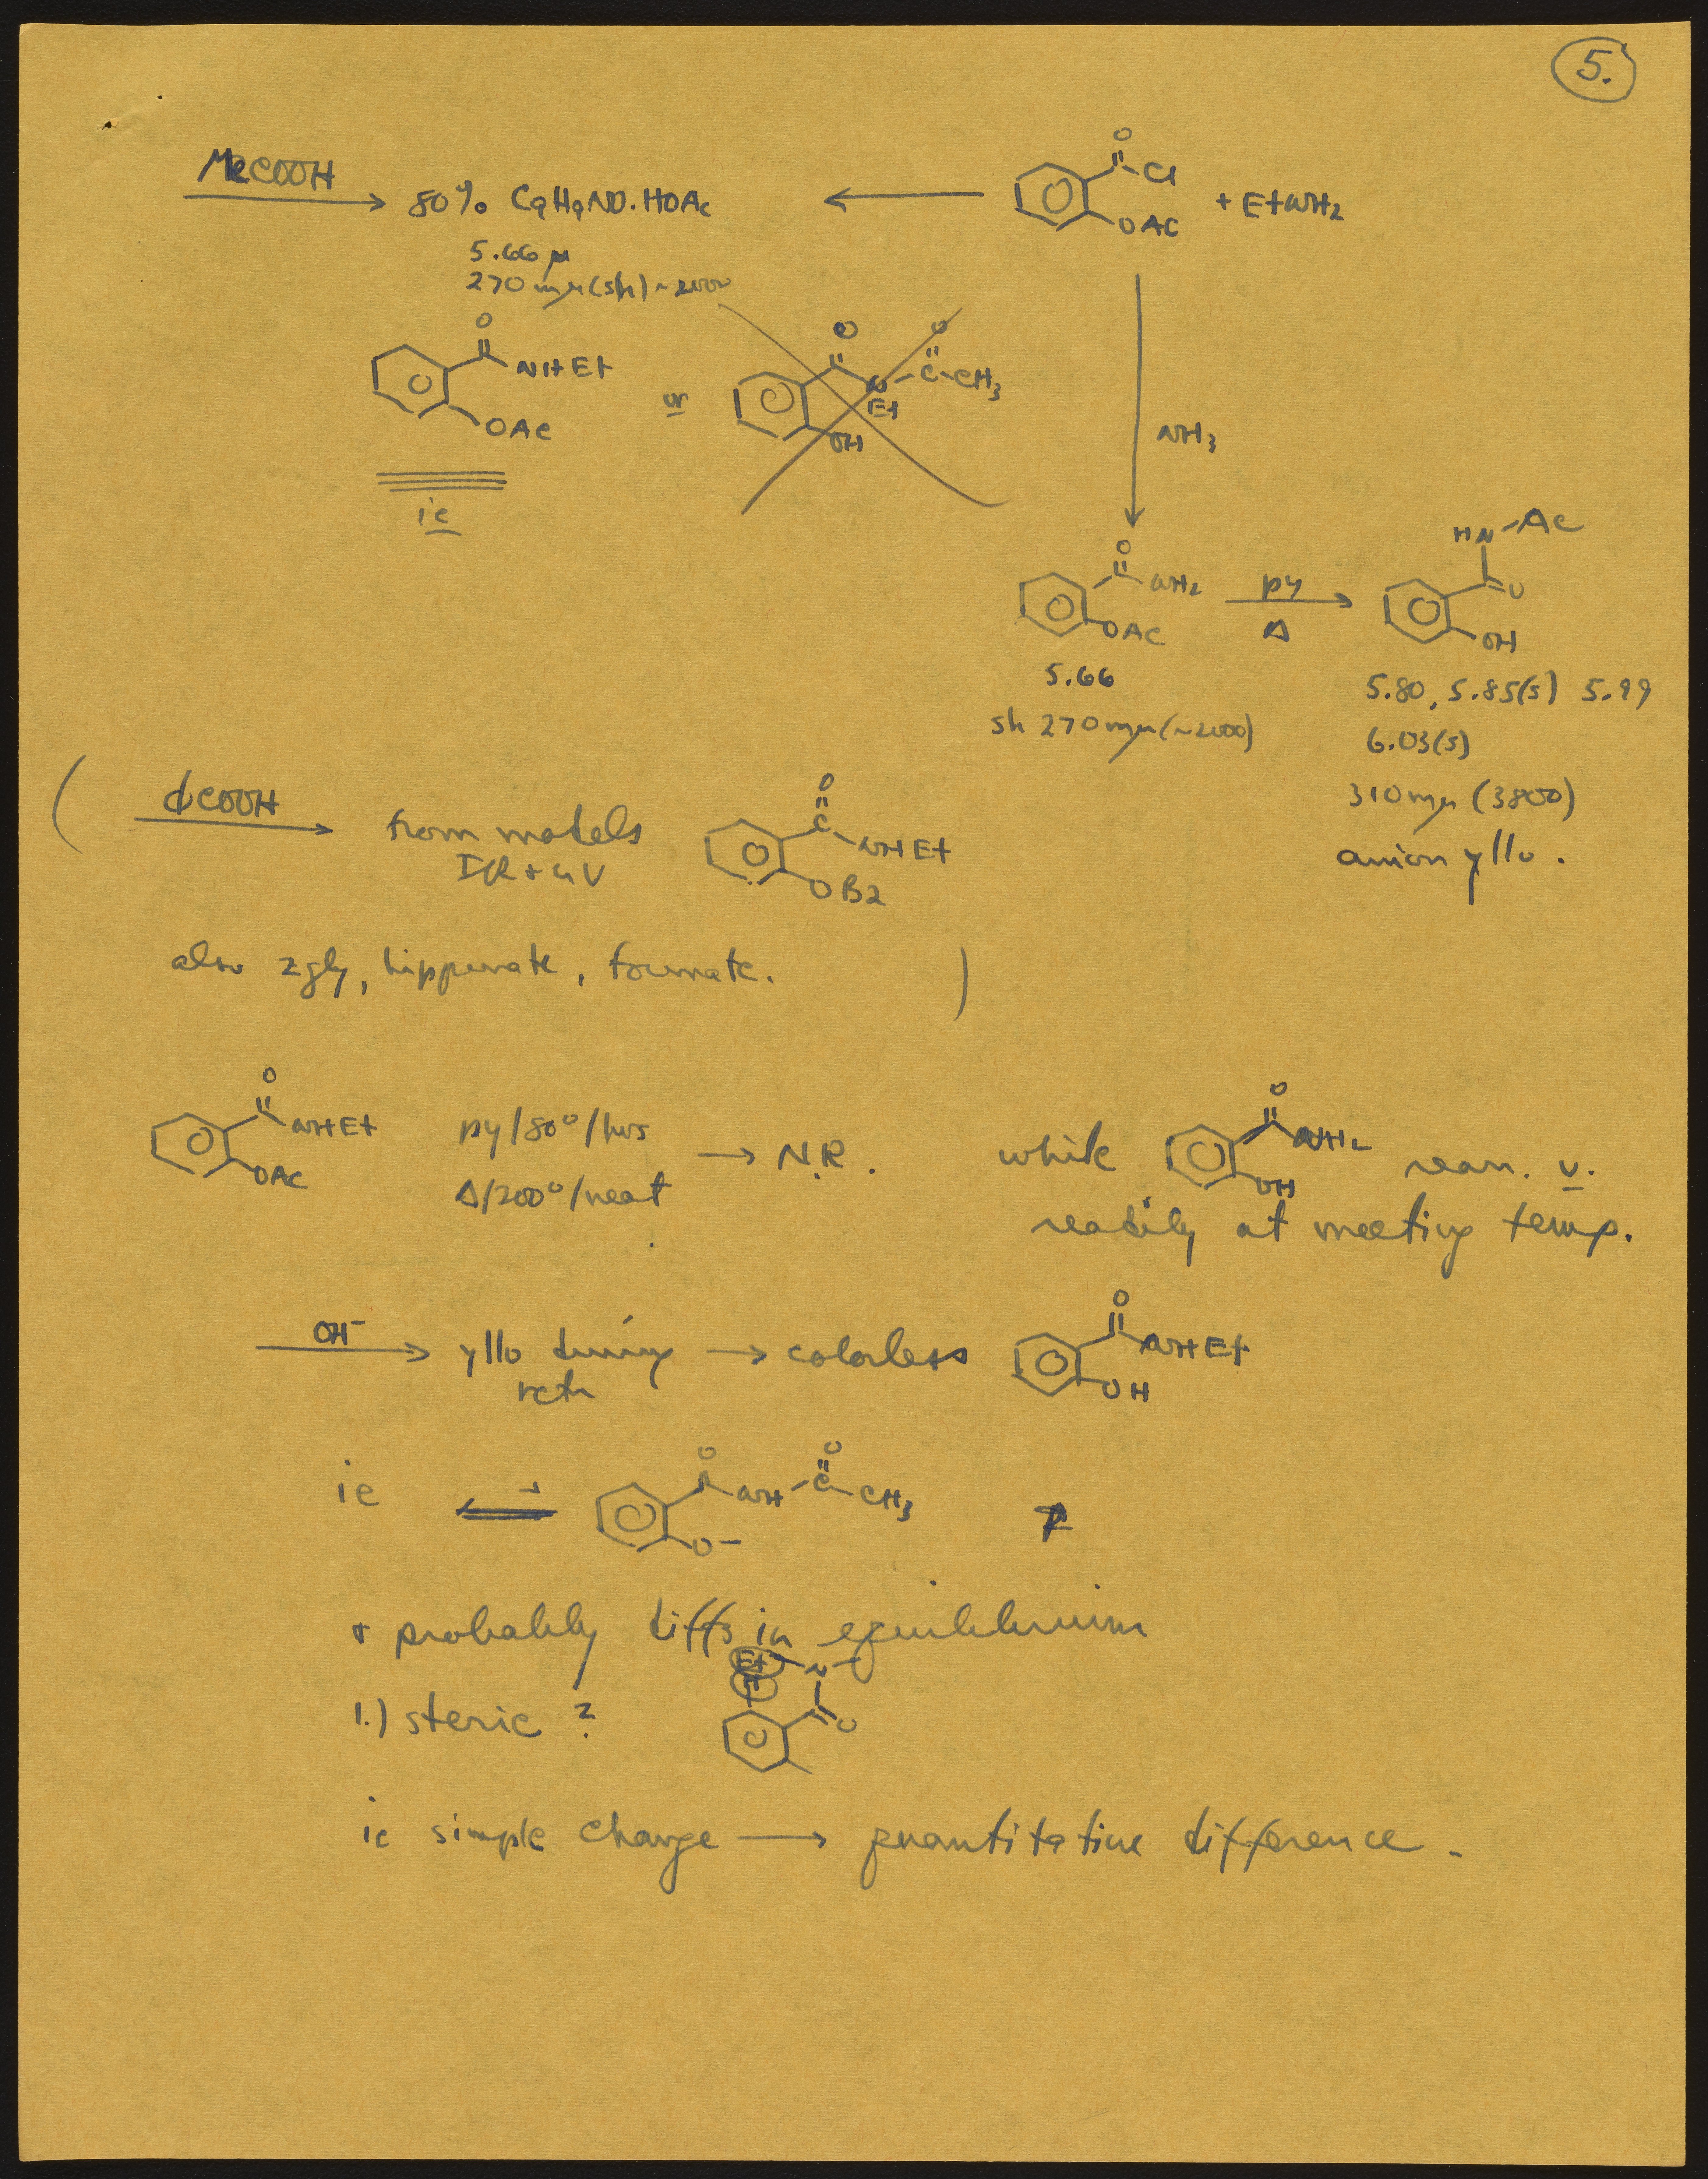 5.
MeCOOH
80% C9H9NO·HOAc
5.66 μ
270 mμ (sh) ~2000
O
Cl
OAc
+ EtNH2
O
NHEt
OAc
or
O
O
N-C-CH3
Et
OH
ie
NH3
O
NH2
OAc
5.66
sh 270 mμ (~2000)
py
Δ
HN-Ac
O
OH
5.80, 5.85(s) 5.99
6.03(s)
310 mμ (3800)
anion yllo.
( ϕCOOH
from models
IR + UV
O
C
NHEt
OBz
also zgly, hippurate, formate. )
O
NHEt
OAc
py/80°/hrs
Δ/200°/neat
→ N.R.
while
O
NH2
OH
rearr. v.
readily at melting temp.
OH-
yllo during → colorless
rctn
O
NHEt
OH
ie
O
NH-C-CH3
O
O-
+ probably diffs in equilibrium
1.) steric ?
Et N
H
O
ie simple change → quantitative difference.